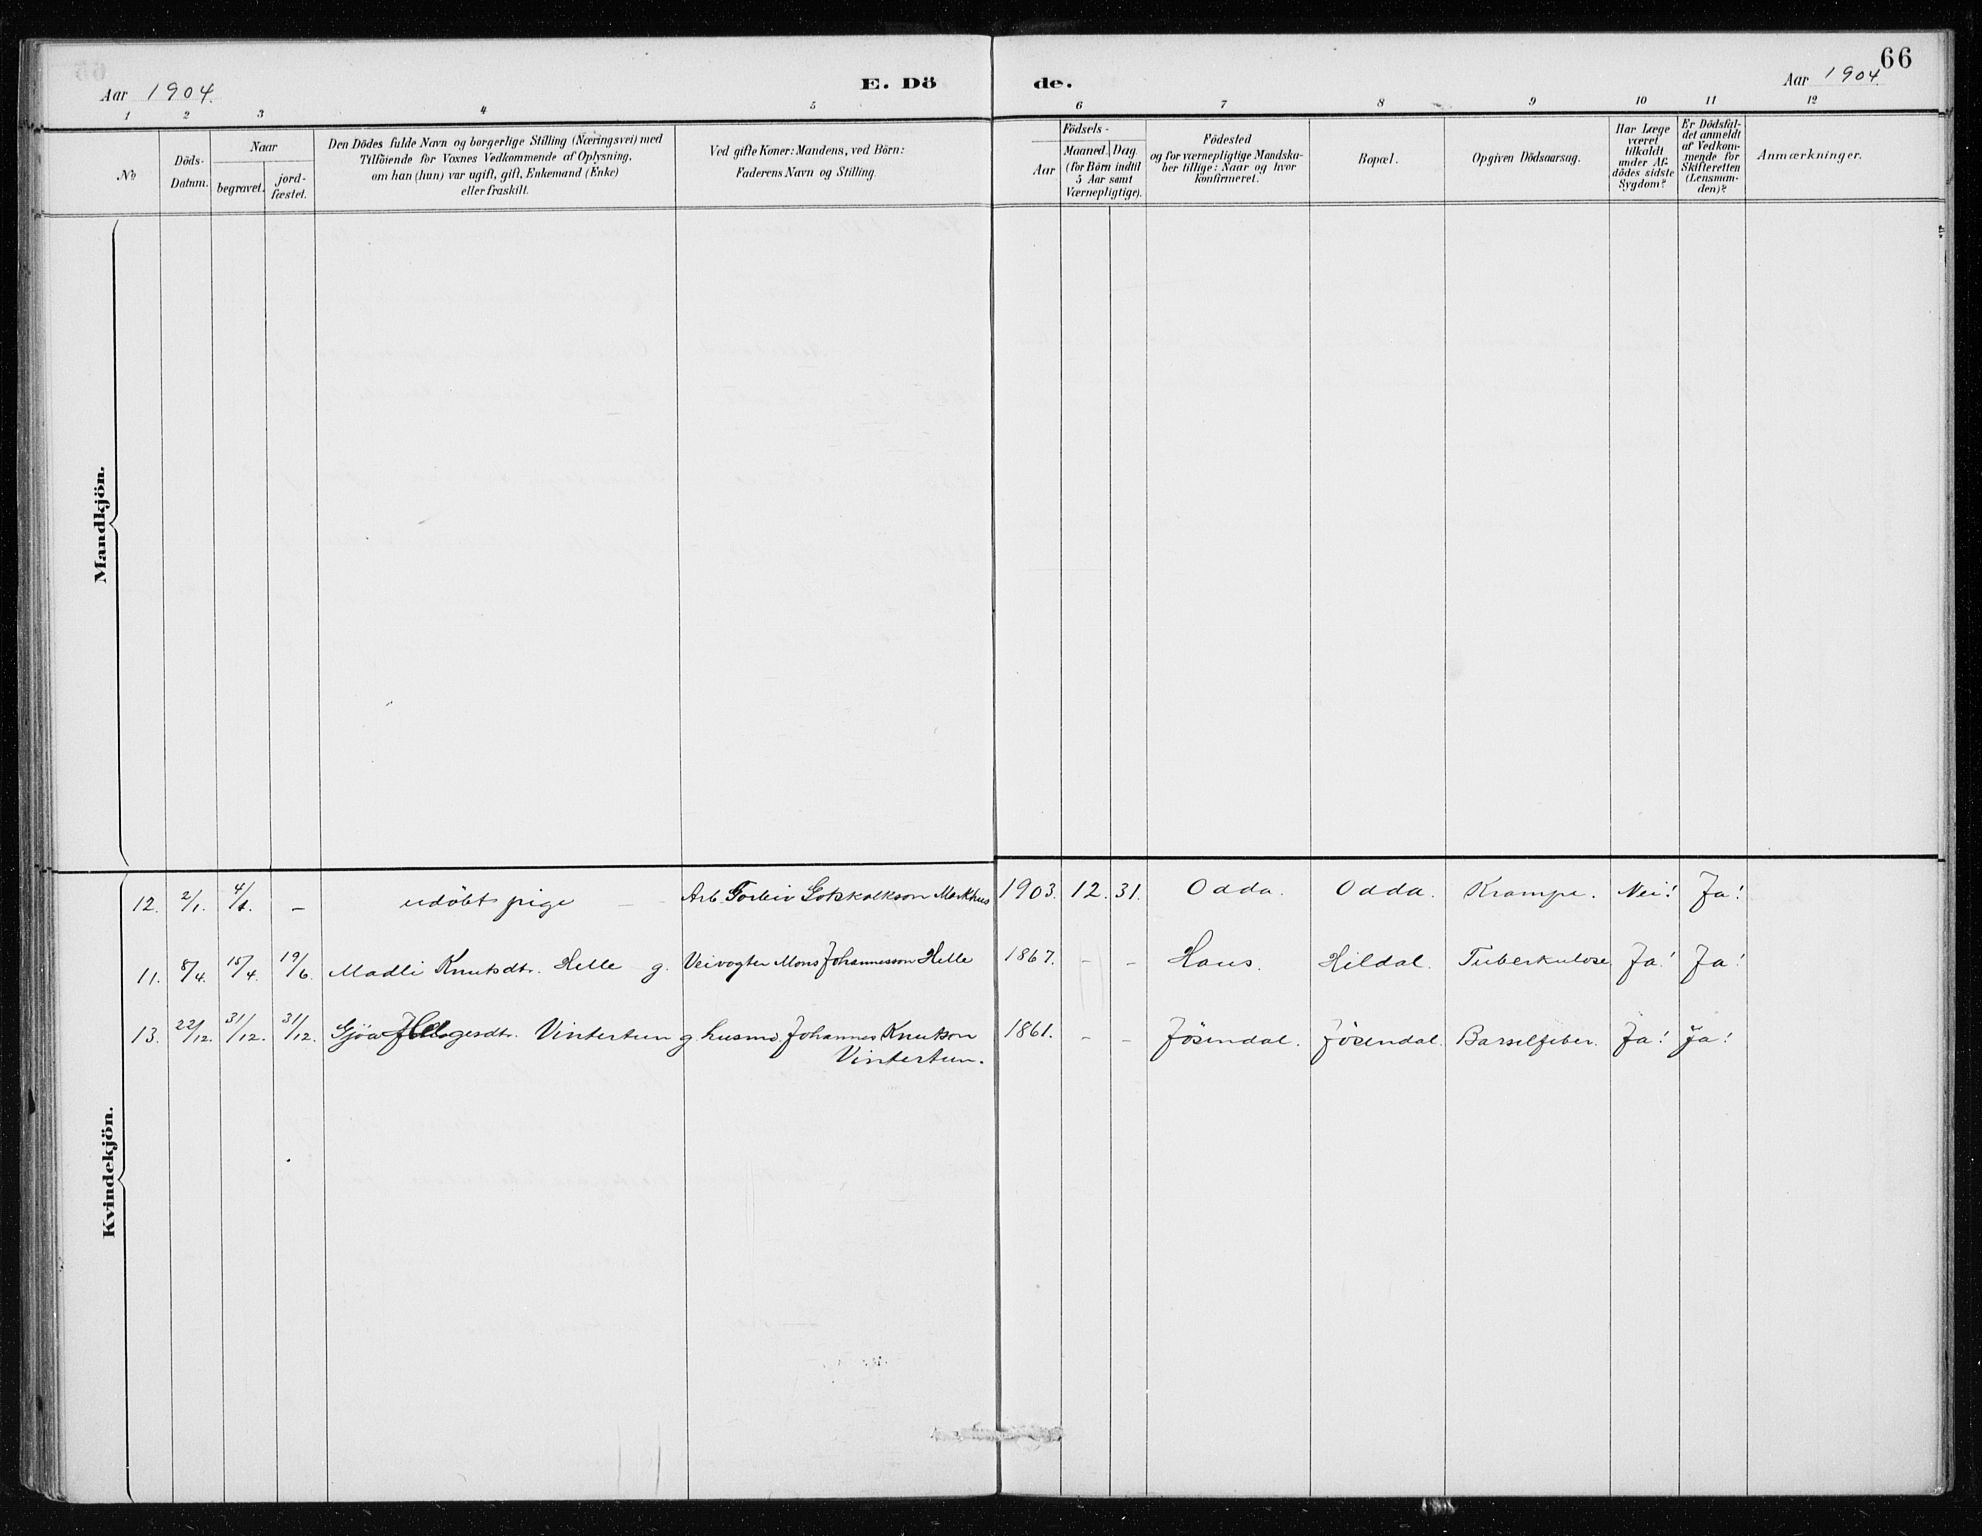 66
Aar 1904.
E. Dö de.
Aar 1904.
1 2 3 4 5 6 7 8 9 10 11 12
No
Döds-
Datum.
Naar
begravet.
jord-
fæstet.
Den Dödes fulde Navn og borgerlige Stilling (Næringsvei) med
Tilföiende for Voxnes Vedkommende af Oplysning,
om han (hun) var ugift, gift, Enkemand (Enke)
eller fraskilt.
Ved gifte Koner: Mandens, ved Börn:
Faderens Navn og Stilling.
Födsels-
Aar
Maaned. Dag
(for Börn indtil
5 Aar samt
Værnepligtige).
Födested
og for værnepligtige Mandska-
ber tillige: Naar og hvor
konfirmeret.
Bopæl.
Opgiven Dödsaarsag.
Har Læge
været
tilkaldt
under Af-
dödes sidste
Sygdom?
Er Dödsfal-
det anmeldt
af Vedkom-
mende for
Skifteretten
(Lensman-
den)?
Anmærkninger.
Mandkjön.
Kvindekjön.
12. 2/1. 4/1. – udöbt pige – – Arb. Torbiv Gotskalkson Markhus 1903. 12. 31. Odda. Odda. Krampe. Nei! Ja!
11. 8/4. 15/4. 19/6. Madli Knutsdtr. Helle g. Veivogter Mons Johannesson Helle 1867. – – Haus. Hildal. Tuberkulose Ja! Ja!
13. 22/12. 31/12. 31/12. Gjöa Helgesdtr. Vintertun g. husmd. Johannes Knutson 1861. – – Jösendal. Jösendal. Barselfeber. Ja! Ja!
Vintertun.